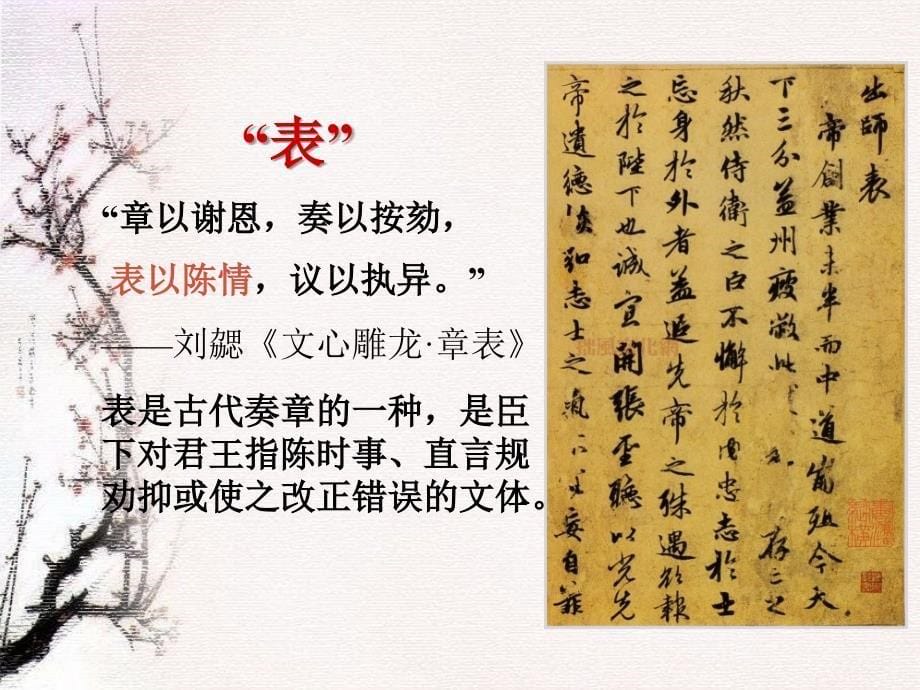 “表”
“章以谢恩，奏以按劾，
表以陈情，议以执异。”
——刘勰《文心雕龙·章表》
表是古代奏章的一种，是臣
下对君王指陈时事、直言规
劝抑或使之改正错误的文体。
出師表
帝創業未半而中道崩殂今天
下三分益州疲敝此存亡之
秋然侍衛之臣不懈於内忠志於士
忘身於外者蓋追先帝之殊遇欲報
之於陛下也誠宜開張聖聽以光先
帝遺德恢弘志士之氣不宜妄自菲